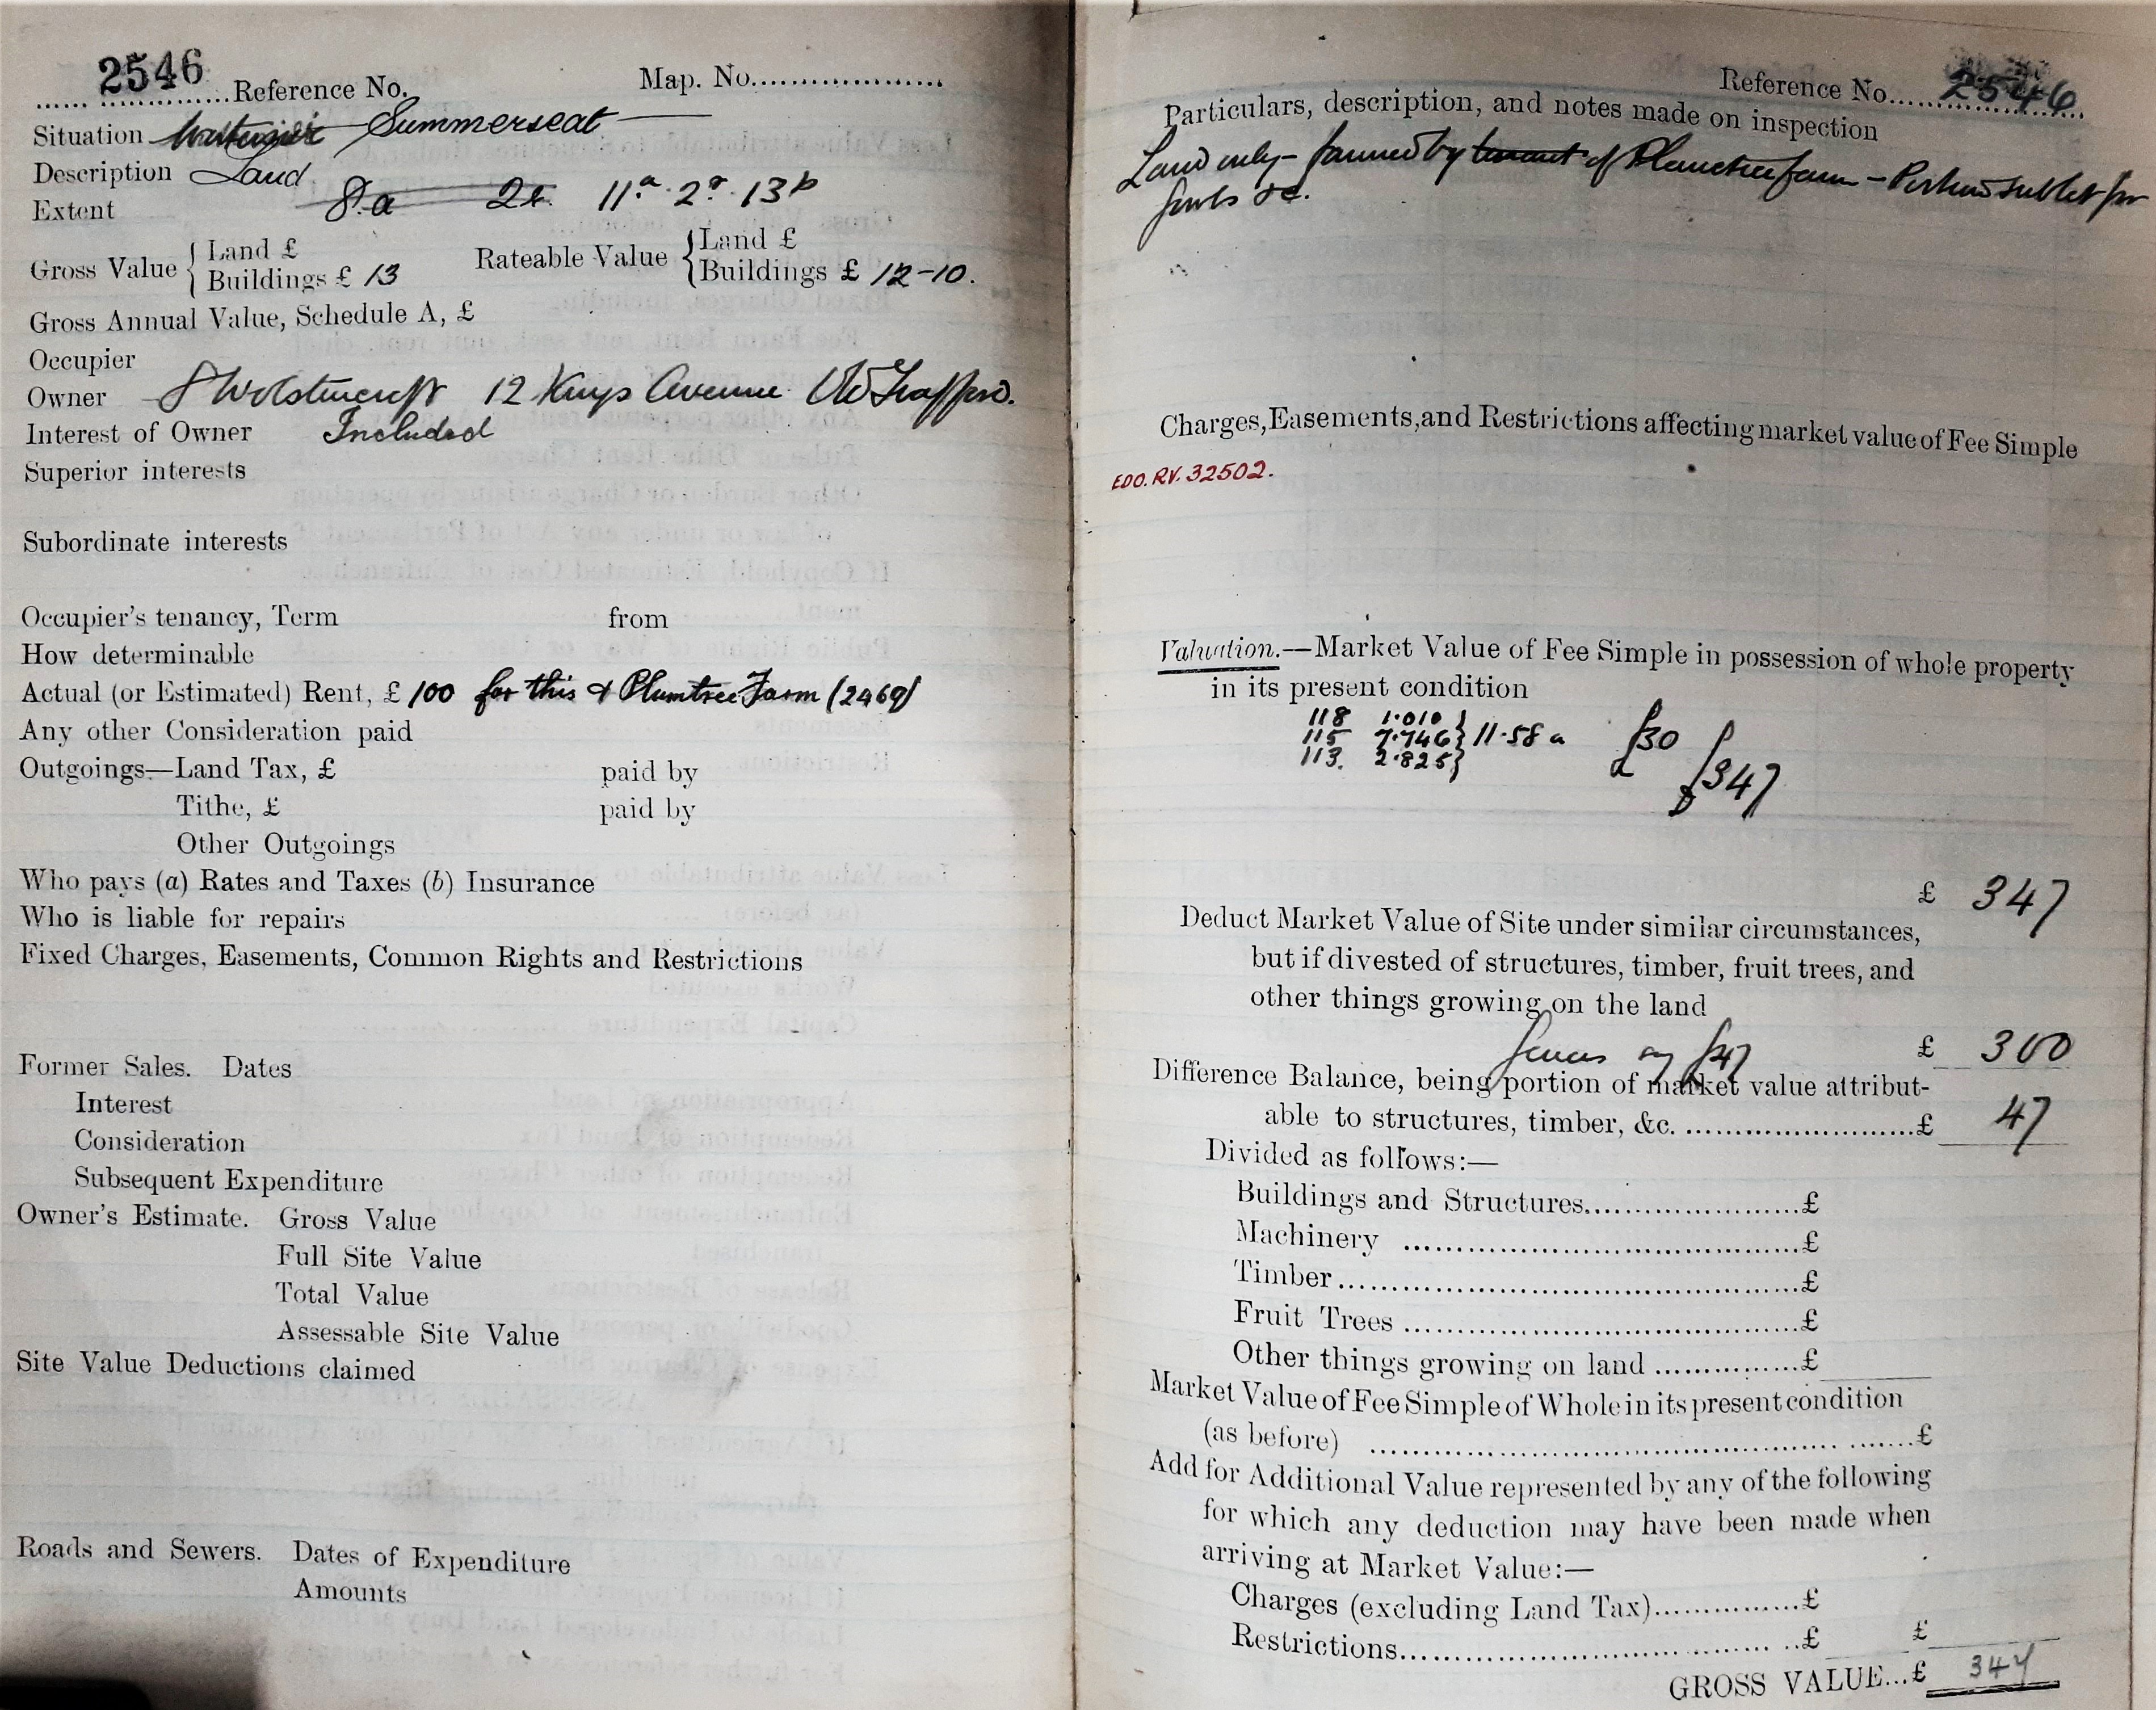 2546 Reference No. Map. No.
Situation Summerseat
Description Land
Extent 8 a 2 r. 11a. 2r. 13p
Gross Value { Land £
Buildings £ 13
Rateable Value { Land £
Buildings £ 12-10.
Gross Annual Value, Schedule A, £
Occupier
Owner Wolstencroft 12 Kings Avenue Old Trafford.
Interest of Owner Included
Superior interests
Subordinate interests
Occupier's tenancy, Term from
How determinable
Actual (or Estimated) Rent, £ 100 for this & Plumtree Farm (2469)
Any other Consideration paid
Outgoings—Land Tax, £ paid by
Tithe, £ paid by
Other Outgoings
Who pays (a) Rates and Taxes (b) Insurance
Who is liable for repairs
Fixed Charges, Easements, Common Rights and Restrictions
Former Sales. Dates
Interest
Consideration
Subsequent Expenditure
Owner's Estimate. Gross Value
Full Site Value
Total Value
Assessable Site Value
Site Value Deductions claimed
Roads and Sewers. Dates of Expenditure
Amounts
Reference No. 2546
Particulars, description, and notes made on inspection
Land only – farmed by tenant of Plumtree farm – Portion sublet for
fowls &c.
Charges, Easements, and Restrictions affecting market value of Fee Simple
EDO. RV. 32502.
Valuation.—Market Value of Fee Simple in possession of whole property
in its present condition
118 1.010
115 7.746 } 11.58 a £30
113. 2.825
£347
£ 347
Deduct Market Value of Site under similar circumstances,
but if divested of structures, timber, fruit trees, and
other things growing on the land
fences say £47 £ 300
Difference Balance, being portion of market value attribut-
able to structures, timber, &c. £ 47
Divided as follows:—
Buildings and Structures £
Machinery £
Timber £
Fruit Trees £
Other things growing on land £
Market Value of Fee Simple of Whole in its present condition
(as before) £
Add for Additional Value represented by any of the following
for which any deduction may have been made when
arriving at Market Value:—
Charges (excluding Land Tax) £
Restrictions £ £
GROSS VALUE...£ 347